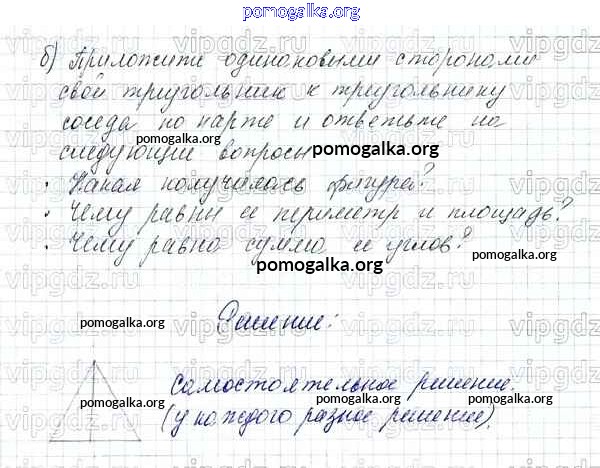 pomogalka.org
б) Приложите одинаковыми сторонами
свой треугольник к треугольнику
соседа по парте и ответьте на
pomogalka.org
следующие вопросы
pomogalka.org
· Какая получилась фигура?
· Чему равны ее периметр и площадь?
· Чему равна сумма ее углов?
pomogalka.org
pomogalka.org
Решение:
pomogalka.org
pomogalka.org
самостоятельное решение.
pomogalka.org
pomogalka.org
(у каждого разное решение).
vipgdz.ru